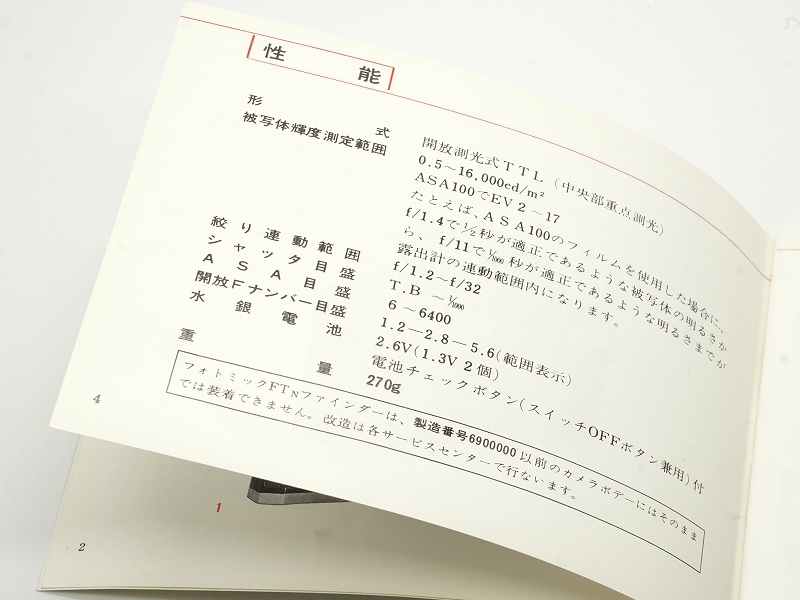 性能
形式 開放測光式TTL (中央部重点測光)
被写体輝度測定範囲 0.5～16,000cd/m²
ASA100でEV2～17
たとえば、ASA100のフィルムを使用した場合に、
f/1.4で½秒が適正であるような被写体の明るさか
ら、f/11で1/1000秒が適正であるような明るさまでが
露出計の連動範囲内になります。
絞り連動範囲 f/1.2～f/32
シャッタ目盛 T.B ～1/1000
ASA目盛 6～6400
開放Fナンバー目盛 1.2—2.8—5.6(範囲表示)
水銀電池 2.6V(1.3V 2個)
電池チェックボタン(スイッチOFFボタン兼用)付
重量 270g
フォトミックFTNファインダーは、製造番号6900000以前のカメラボデーにはそのまま
では装着できません。改造は各サービスセンターで行ないます。
4
1
2